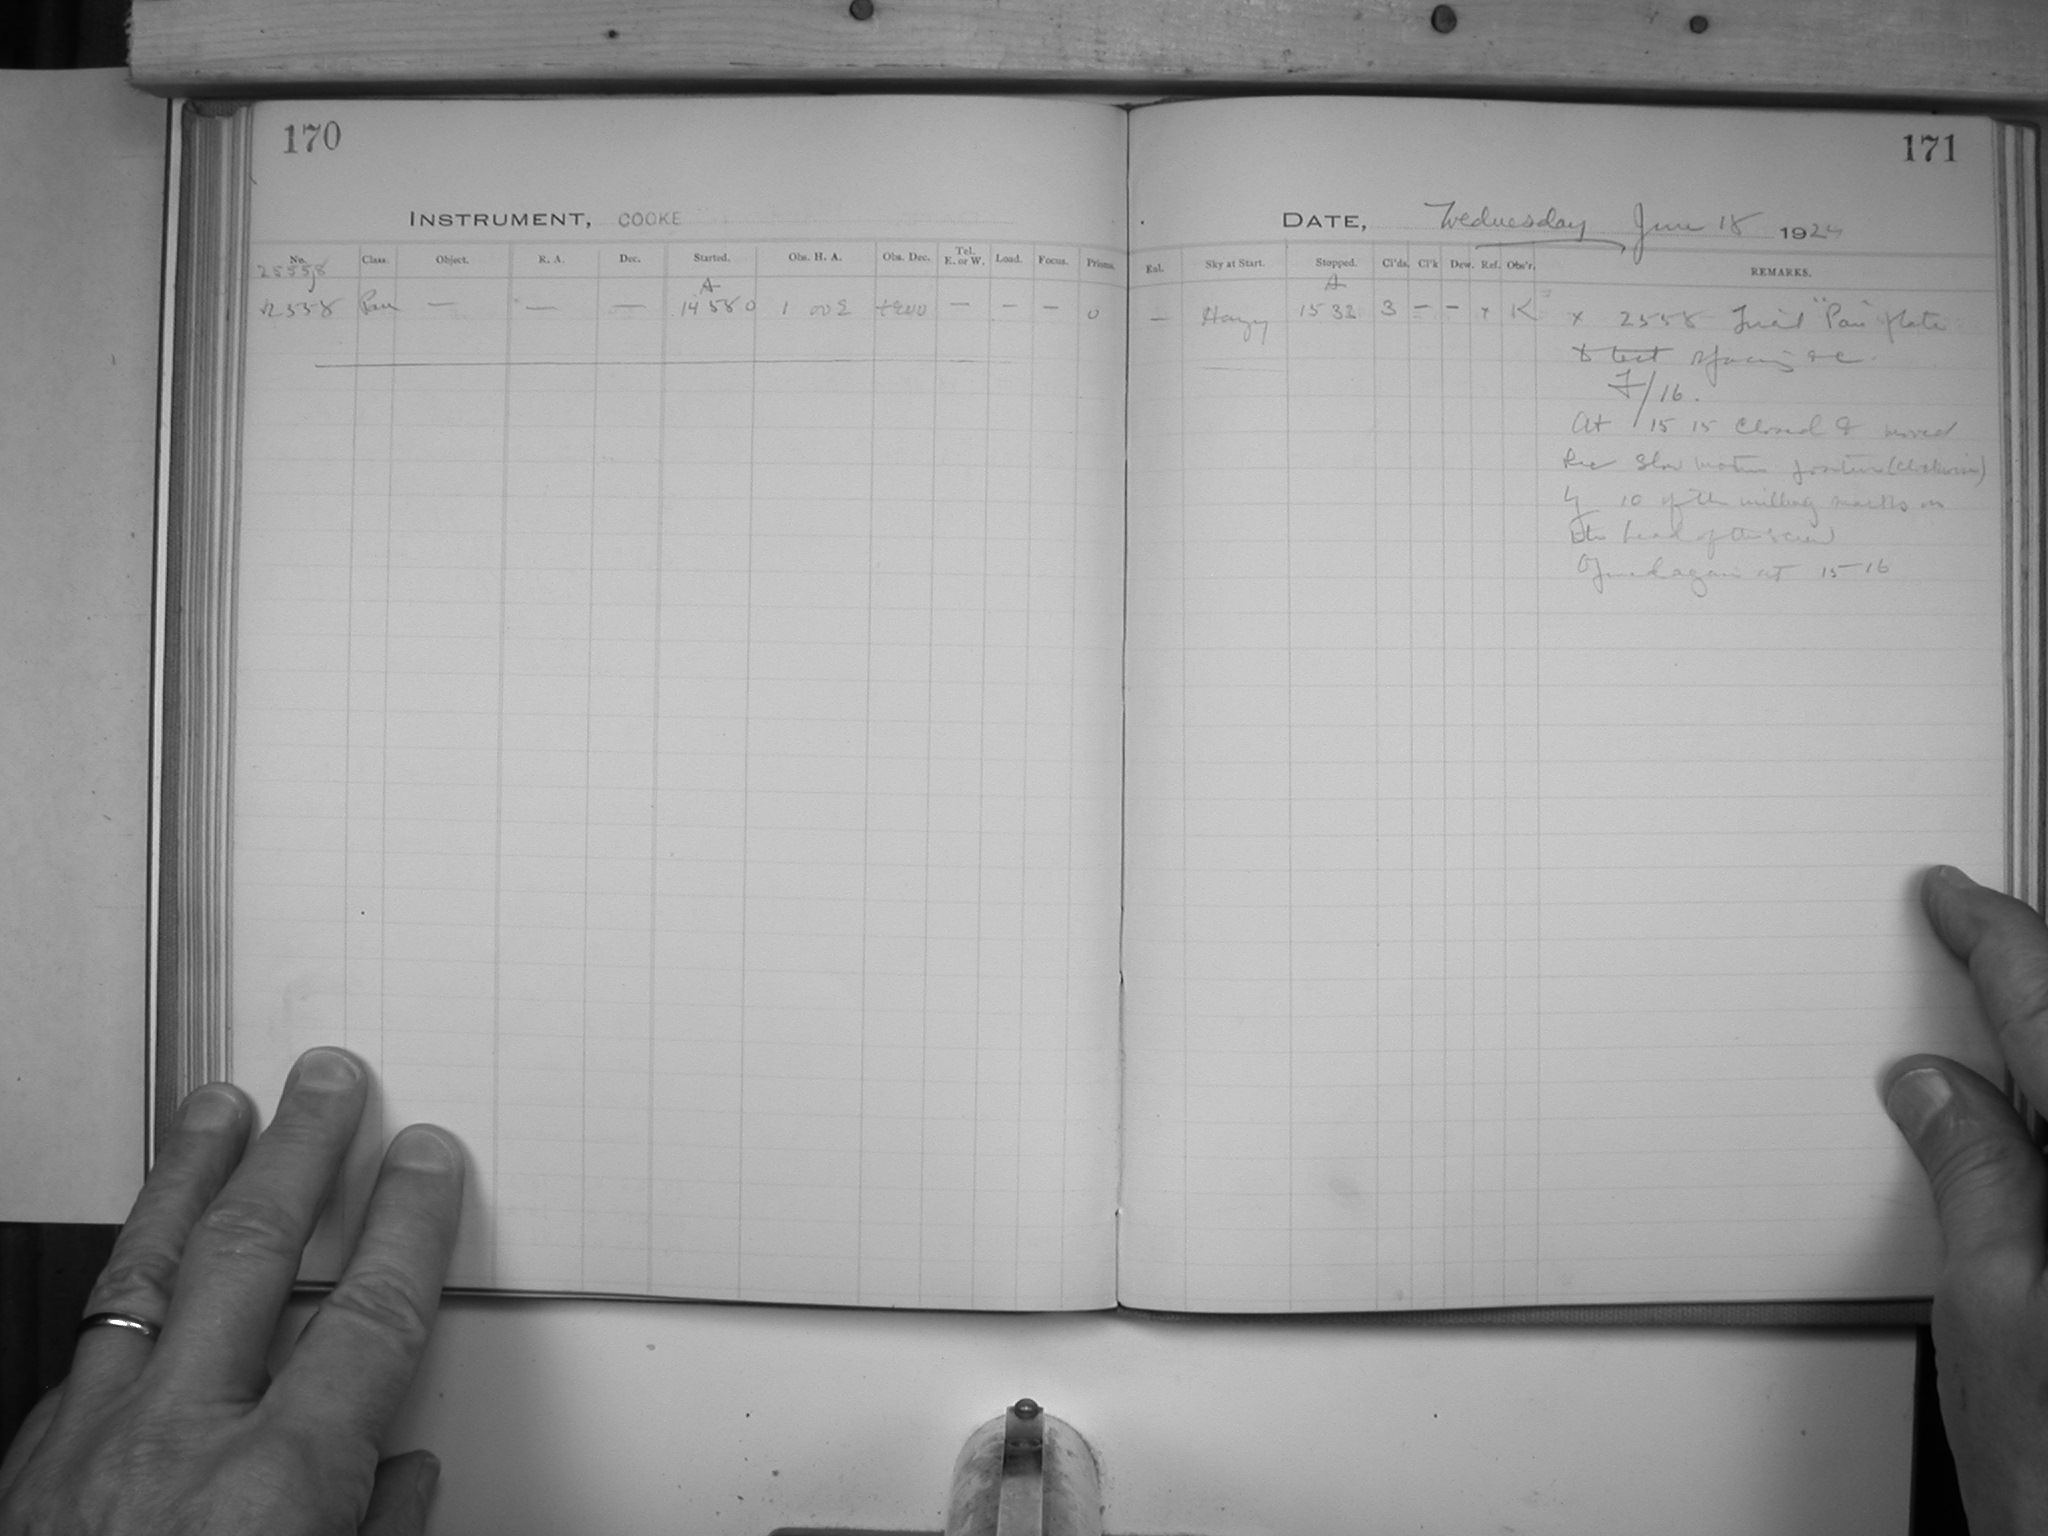 170
INSTRUMENT, COOKE
No. Class. Object. R. A. Dec. Started. Obs. H. A. Obs. Dec. Tel. E. or W. Load. Focus. Prisms.
25558 A
2558 Pan — — — 14 58 0 1 002 — — — 0
171
DATE, Wednesday June 18 1924
Ral. Sky at Start. Stopped. Cl'ds. Cl'k Dew. Ref. Obs'r. REMARKS.
A
— Hazy 15 32 3 — — x K x 2558 Trial "Pan" plate
to test spacing &c.
F/16.
At 15 15 Closed & moved
Dec Slow motion (clockwise)
by 10 of the milling marks on
the head of the screw
Opened again at 15 16